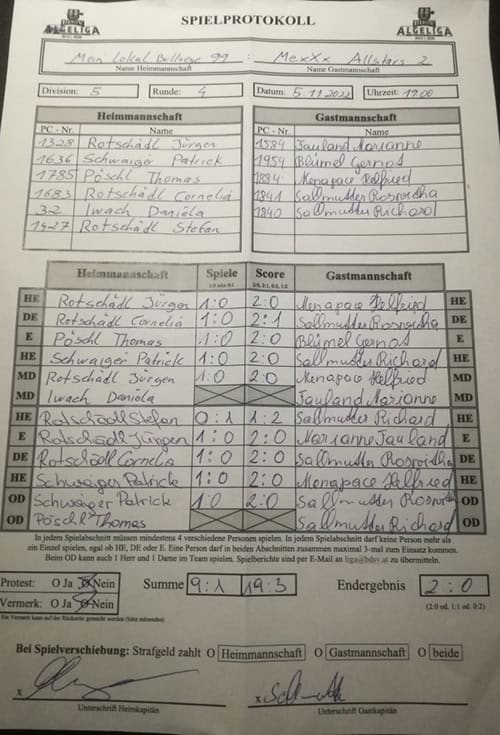 SPIELPROTOKOLL
ALGELIGA ALGELIGA
Mein Lokal Bullseye 99 : MexXx Allstars 2
Name Heimmannschaft Name Gastmannschaft
Division: 5 Runde: 4 Datum: 5.11.2022 Uhrzeit: 19:00
Heimmannschaft Gastmannschaft
PC - Nr. Name PC - Nr. Name
1328 Rotschädl Jürgen 1584 Fauland Marianne
1636 Schwaiger Patrick 1954 Blümel Gernot
1785 Pöschl Thomas 1884 Menapace Helfried
1683 Rotschädl Cornelia 1841 Sallmutter Roswitha
32 Iwach Daniela 1840 Sallmutter Richard
1427 Rotschädl Stefan
Heimmannschaft Spiele Score Gastmannschaft
1:0 oder 0:1 2:0, 2:1, 0:2, 1:2
HE Rotschädl Jürgen 1:0 2:0 Menapace Helfried HE
DE Rotschädl Cornelia 1:0 2:1 Sallmutter Roswitha DE
E Pöschl Thomas 1:0 2:0 Blümel Gernot E
HE Schwaiger Patrick 1:0 2:0 Sallmutter Richard HE
MD Rotschädl Jürgen 1:0 2:0 Menapace Helfried MD
MD Iwach Daniela Fauland Marianne MD
HE Rotschädl Stefan 0:1 1:2 Sallmutter Richard HE
E Rotschädl Jürgen 1:0 2:0 Marianne Fauland E
DE Rotschädl Cornelia 1:0 2:0 Sallmutter Roswitha DE
HE Schwaiger Patrick 1:0 2:0 Menapace Helfried HE
OD Schwaiger Patrick 1:0 2:0 Sallmutter Roswitha OD
OD Pöschl Thomas Sallmutter Richard OD
In jedem Spielabschnitt müssen mindestens 4 verschiedene Personen spielen. In jedem Spielabschnitt darf keine Person mehr als
ein Einzel spielen, egal ob HE, DE oder E. Eine Person darf in beiden Abschnitten zusammen maximal 3-mal zum Einsatz kommen.
Beim OD kann auch 1 Herr und 1 Dame im Team spielen. Spielberichte sind per E-Mail an liga@bdsv.at zu übermitteln.
Protest: O Ja O Nein Summe 9:1 19:3 Endergebnis 2:0
Vermerk: O Ja O Nein (2:0 od. 1:1 od. 0:2)
Ein Vermerk kann auf der Rückseite gemacht werden (bitte ankreuzen)
Bei Spielverschiebung: Strafgeld zahlt O Heimmannschaft O Gastmannschaft O beide
x x
Unterschrift Heimkapitän Unterschrift Gastkapitän